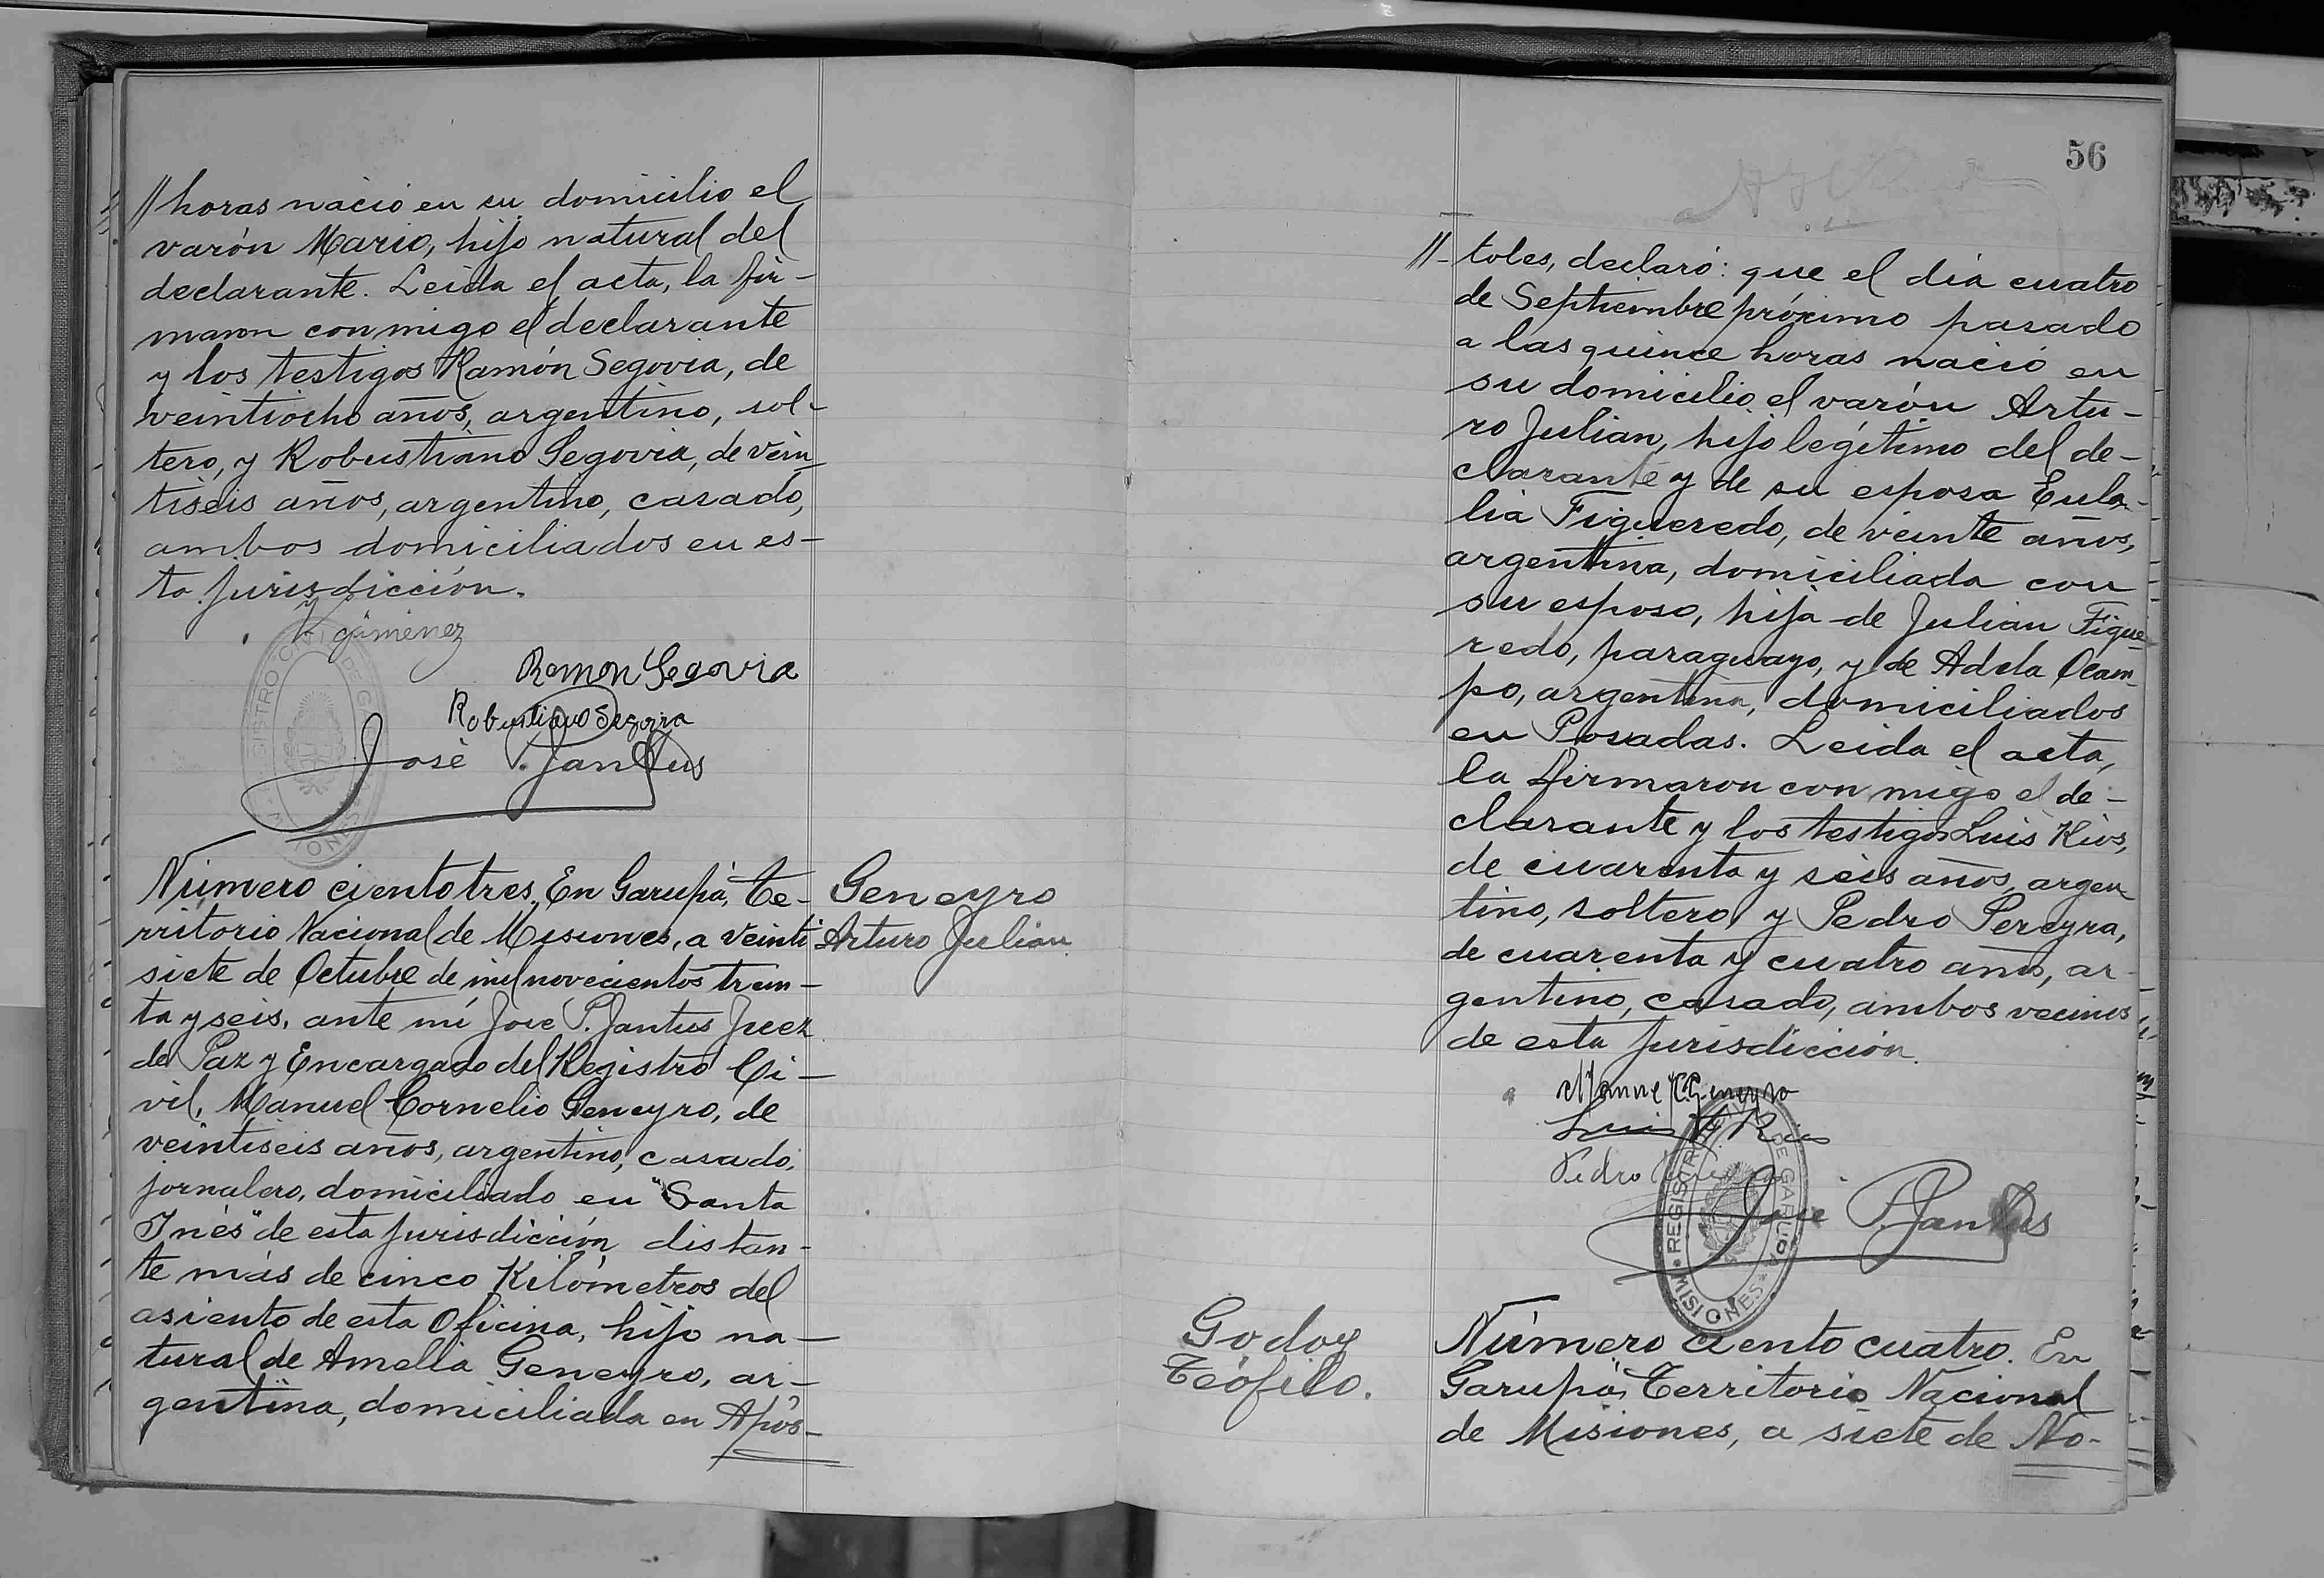 // horas nació en su domicilio el
varón Mario, hijo natural del
declarante. Leída el acta, la fir-
maron conmigo el declarante
y los testigos Ramón Segovia, de
veintiocho años, argentino, sol-
tero, y Robustiano Segovia, de vein-
tiseis años, argentino, casado,
ambos domiciliados en es-
ta jurisdicción.
gimenez
Ramon Segovia
Robustiano Segovia
José P. Jantus
Número ciento tres. En Garupá, Te-
rritorio Nacional de Misiones, a veinti
siete de Octubre de mil novecientos trein-
ta y seis, ante mí José P. Jantus Juez
de Paz y Encargado del Registro Ci-
vil, Manuel Cornelio Geneyro, de
veintiseis años, argentino, casado,
jornalero, domiciliado en "Santa
Inés" de esta jurisdicción distan-
te más de cinco Kilómetros del
asiento de esta Oficina, hijo na-
tural de Amelia Geneyro, ar-
gentina, domiciliada en Após-
Geneyro
Arturo Julian
56
//- toles, declaró: que el día cuatro
de Septiembre próximo pasado
a las quince horas nació en
su domicilio el varón Artu-
ro Julian, hijo legítimo del de-
clarante y de su esposa Eula-
lia Figueredo, de veinte años,
argentina, domiciliada con
su esposo, hija de Julian Figue-
redo, paraguayo, y de Adela Ocam-
po, argentina, domiciliados
en Posadas. Leída el acta,
la firmaron conmigo el de-
clarante y los testigos Luis Rios,
de cuarenta y seis años, argen
tino, soltero, y Pedro Pereyra,
de cuarenta y cuatro años, ar-
gentino, casado, ambos vecinos
de esta jurisdicción.
Manuel C. Geneyro
Luis Rios
Pedro
José P. Jantus
REGISTRO CIVIL DE GARUPA
* MISIONES *
Godoy
Teófilo.
Número ciento cuatro. En
Garupá, Territorio Nacional
de Misiones, a siete de No-